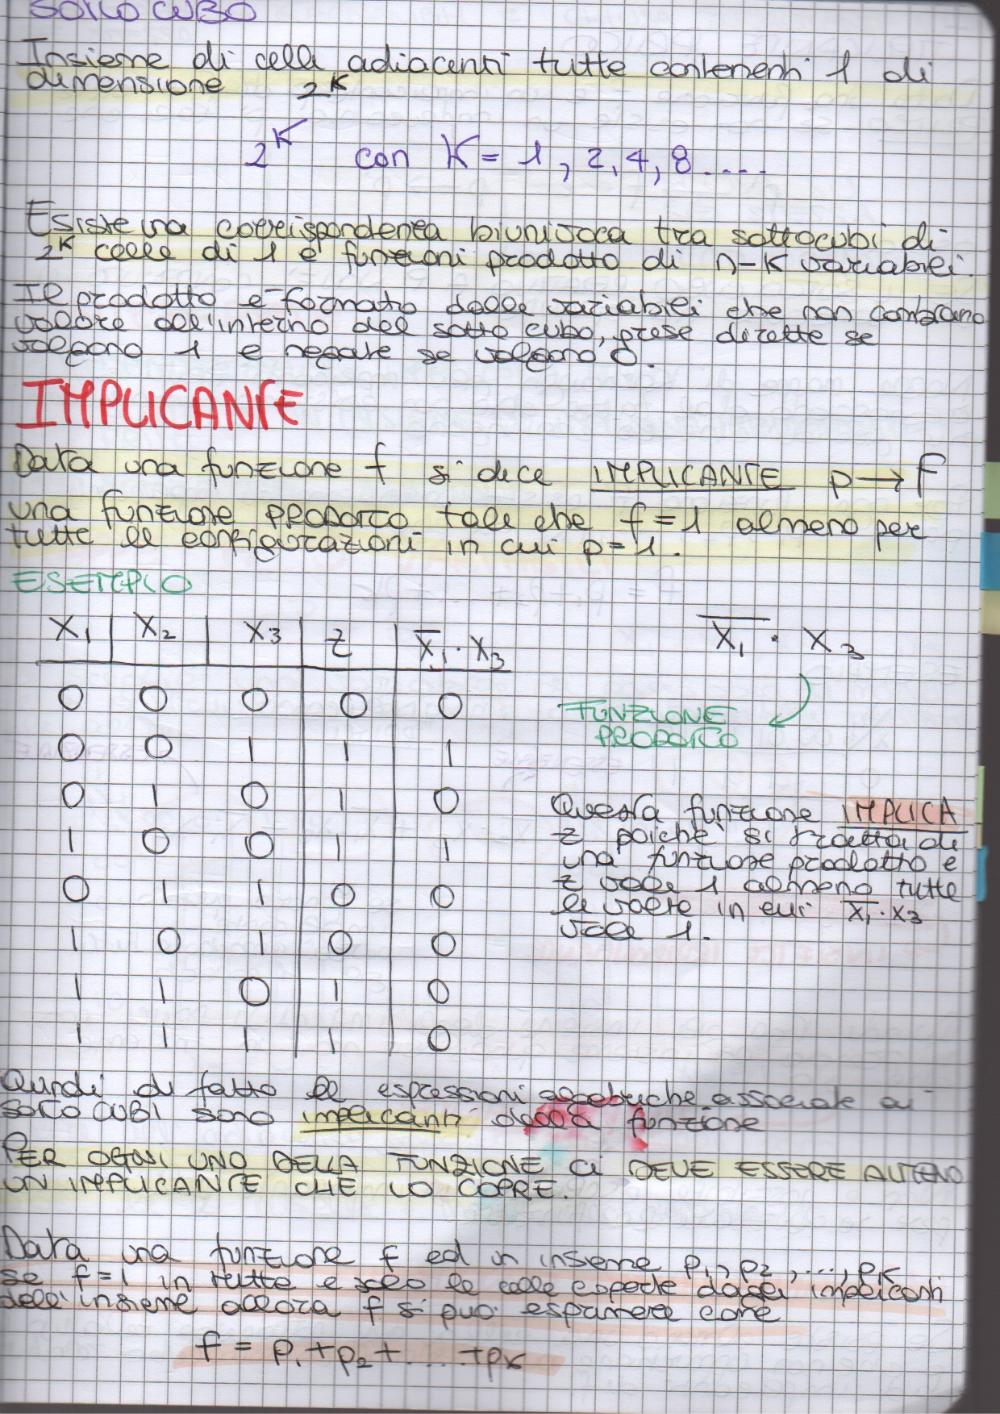 SOTTO CUBO
Insieme di celle adiacenti tutte contenenti 1 di
dimensione 2^K
2^K con K = 1, 2, 4, 8 ....
Esiste una corrispondenza biunivoca tra sottocubi di
2^K celle di 1 e funzioni prodotto di n-K variabili.
Il prodotto è formato dalle variabili che non cambiano
valore all'interno del sotto cubo, prese dirette se
valgono 1 e negate se valgono 0.
IMPLICANTE
Data una funzione f si dice IMPLICANTE p → F
una funzione PRODOTTO tale che f=1 almeno per
tutte le configurazioni in cui p=1.
ESEMPIO
X1 X2 X3 Z X̅1 · X3
0 0 0 0 0
0 0 1 1 1
0 1 0 1 0
1 0 0 1 1
0 1 1 0 0
1 0 1 0 0
1 1 0 1 0
1 1 1 1 0
X̅1 · X3
FUNZIONE
PRODOTTO
Questa funzione IMPLICA
z poiché si tratta di
una funzione prodotto e
z vale 1 almeno tutte
le volte in cui X̅1 · X3
vale 1.
Quindi di fatto le espressioni algebriche associate ai
SOTTO CUBI sono implicanti della funzione
PER OGNI UNO DELLA FUNZIONE CI DEVE ESSERE ALMENO
UN IMPLICANTE CHE LO COPRE.
Data una funzione f ed un insieme p1, p2, ..., pK
se f=1 in tutte e solo le celle coperte dagli implicanti
dell'insieme allora f si può esprimere come
f = p1 + p2 + .... + pK